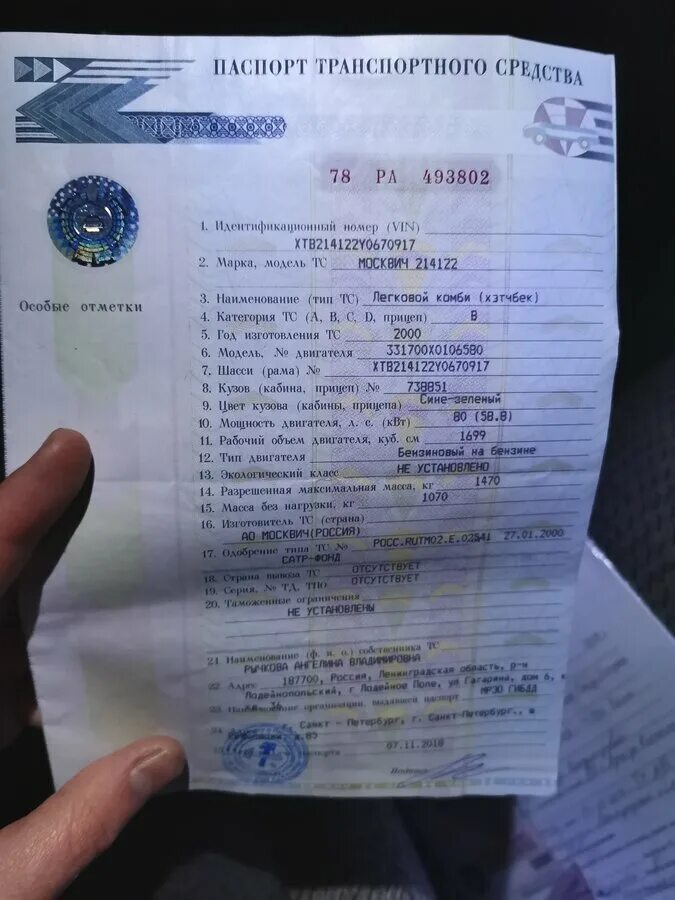 ПАСПОРТ ТРАНСПОРТНОГО СРЕДСТВА
78 РА 493802
1. Идентификационный номер (VIN)
XTB214122Y0670917
2. Марка, модель ТС МОСКВИЧ 214122
Особые отметки
3. Наименование (тип ТС) Легковой комби (хэтчбек)
4. Категория ТС (A, B, C, D, прицеп) B
5. Год изготовления ТС 2000
6. Модель, № двигателя 331700X0106580
7. Шасси (рама) № XTB214122Y0670917
8. Кузов (кабина, прицеп) № 738851
9. Цвет кузова (кабины, прицепа) Сине-зеленый
10. Мощность двигателя, л. с. (кВт) 80 (58.8)
11. Рабочий объем двигателя, куб. см 1699
12. Тип двигателя Бензиновый на бензине
13. Экологический класс НЕ УСТАНОВЛЕНО
14. Разрешенная максимальная масса, кг 1470
15. Масса без нагрузки, кг 1070
16. Изготовитель ТС (страна)
АО МОСКВИЧ(РОССИЯ)
17. Одобрение типа ТС № РОСС.RUTM02.E.02541 27.01.2000
САТР-ФОНД
18. Страна вывоза ТС ОТСУТСТВУЕТ
19. Серия, № ТД, ТПО ОТСУТСТВУЕТ
20. Таможенные ограничения
НЕ УСТАНОВЛЕНЫ
21. Наименование (ф. и. о.) собственника ТС
РЫЧКОВА АНГЕЛИНА ВЛАДИМИРОВНА
22. Адрес 187700, Россия, Ленинградская область, р-н
Лодейнопольский, г Лодейное Поле, ул Гагарина, дом 6, к
23. Наименование организации, выдавшей паспорт МРЭО ГИБДД
24. г. Санкт - Петербург, г. Санкт-Петербург.,
паспорта 07.11.2018
Подпись